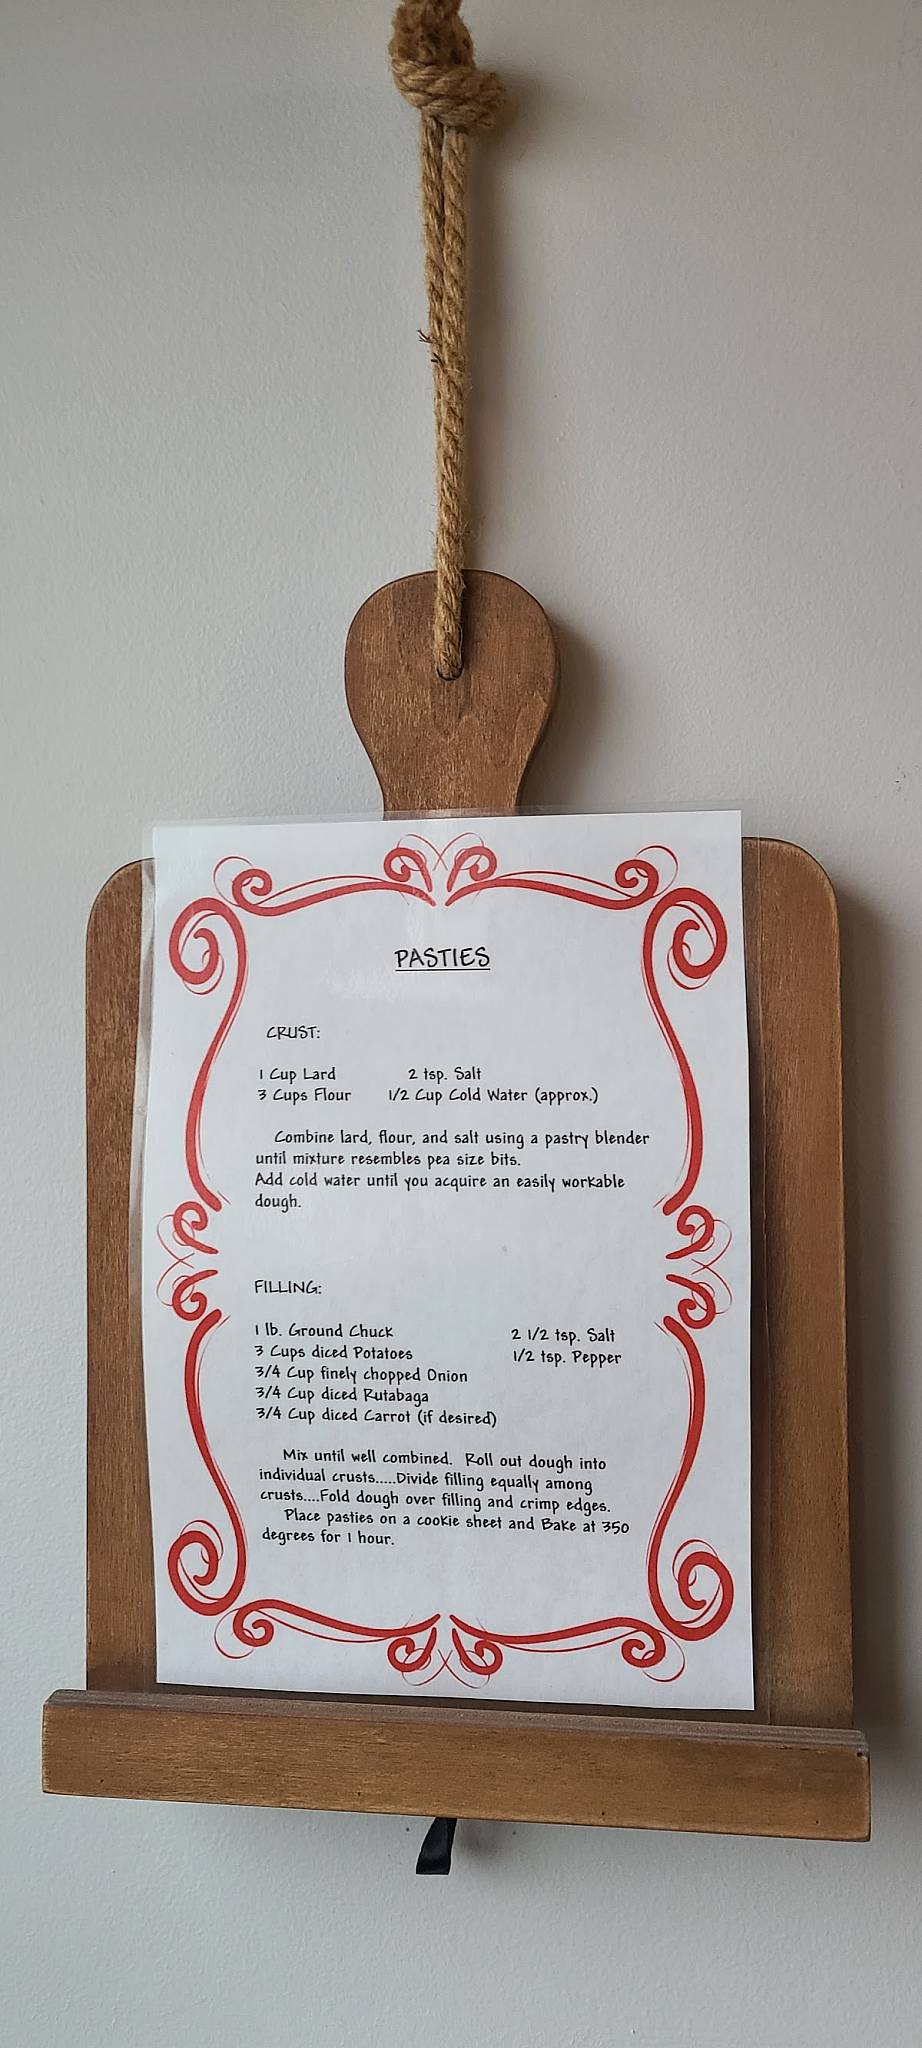 PASTIES
CRUST:
1 Cup Lard 2 tsp. Salt
3 Cups Flour 1/2 Cup Cold Water (approx.)
Combine lard, flour, and salt using a pastry blender
until mixture resembles pea size bits.
Add cold water until you acquire an easily workable
dough.
FILLING:
1 lb. Ground Chuck 2 1/2 tsp. Salt
3 Cups diced Potatoes 1/2 tsp. Pepper
3/4 Cup finely chopped Onion
3/4 Cup diced Rutabaga
3/4 Cup diced Carrot (if desired)
Mix until well combined. Roll out dough into
individual crusts.....Divide filling equally among
crusts....Fold dough over filling and crimp edges.
Place pasties on a cookie sheet and Bake at 350
degrees for 1 hour.